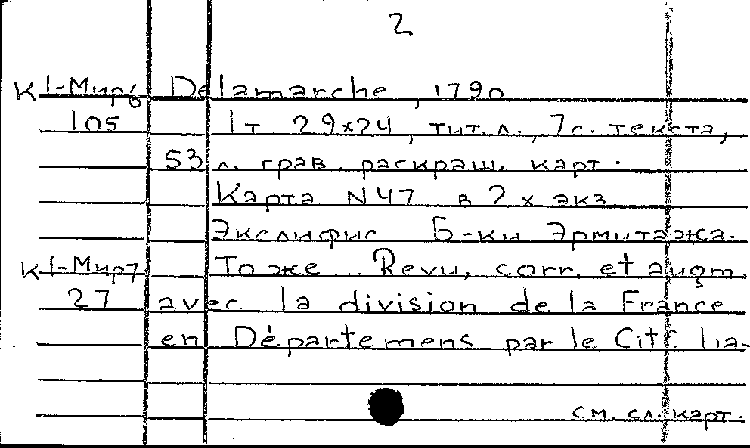 2
К 1-Мир6 Delamarche, 1790
105 1т 29x24, тит. л., 7с. текста,
53 л. грав. раскраш. карт.
Карта N47 в 2х экз
Экслибрис Б-ки Эрмитажа.
К 1-Мир7 То же Revu, corr. et augm.
27 avec la division de la France
en Départemens par le Cit.
см. сл. карт.